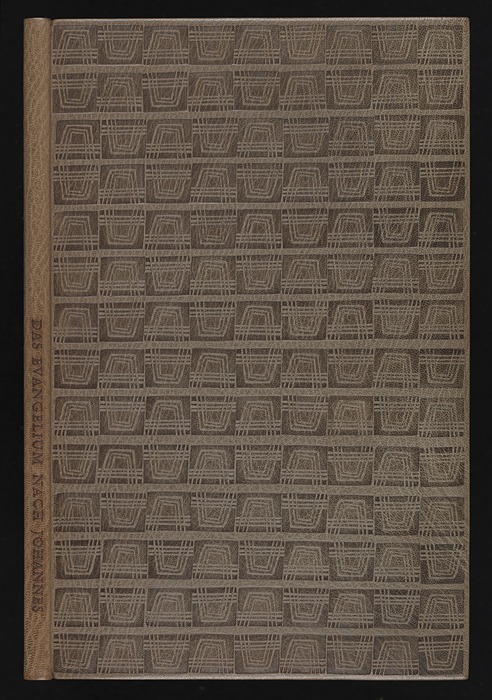 DAS EVANGELIUM NACH JOHANNES